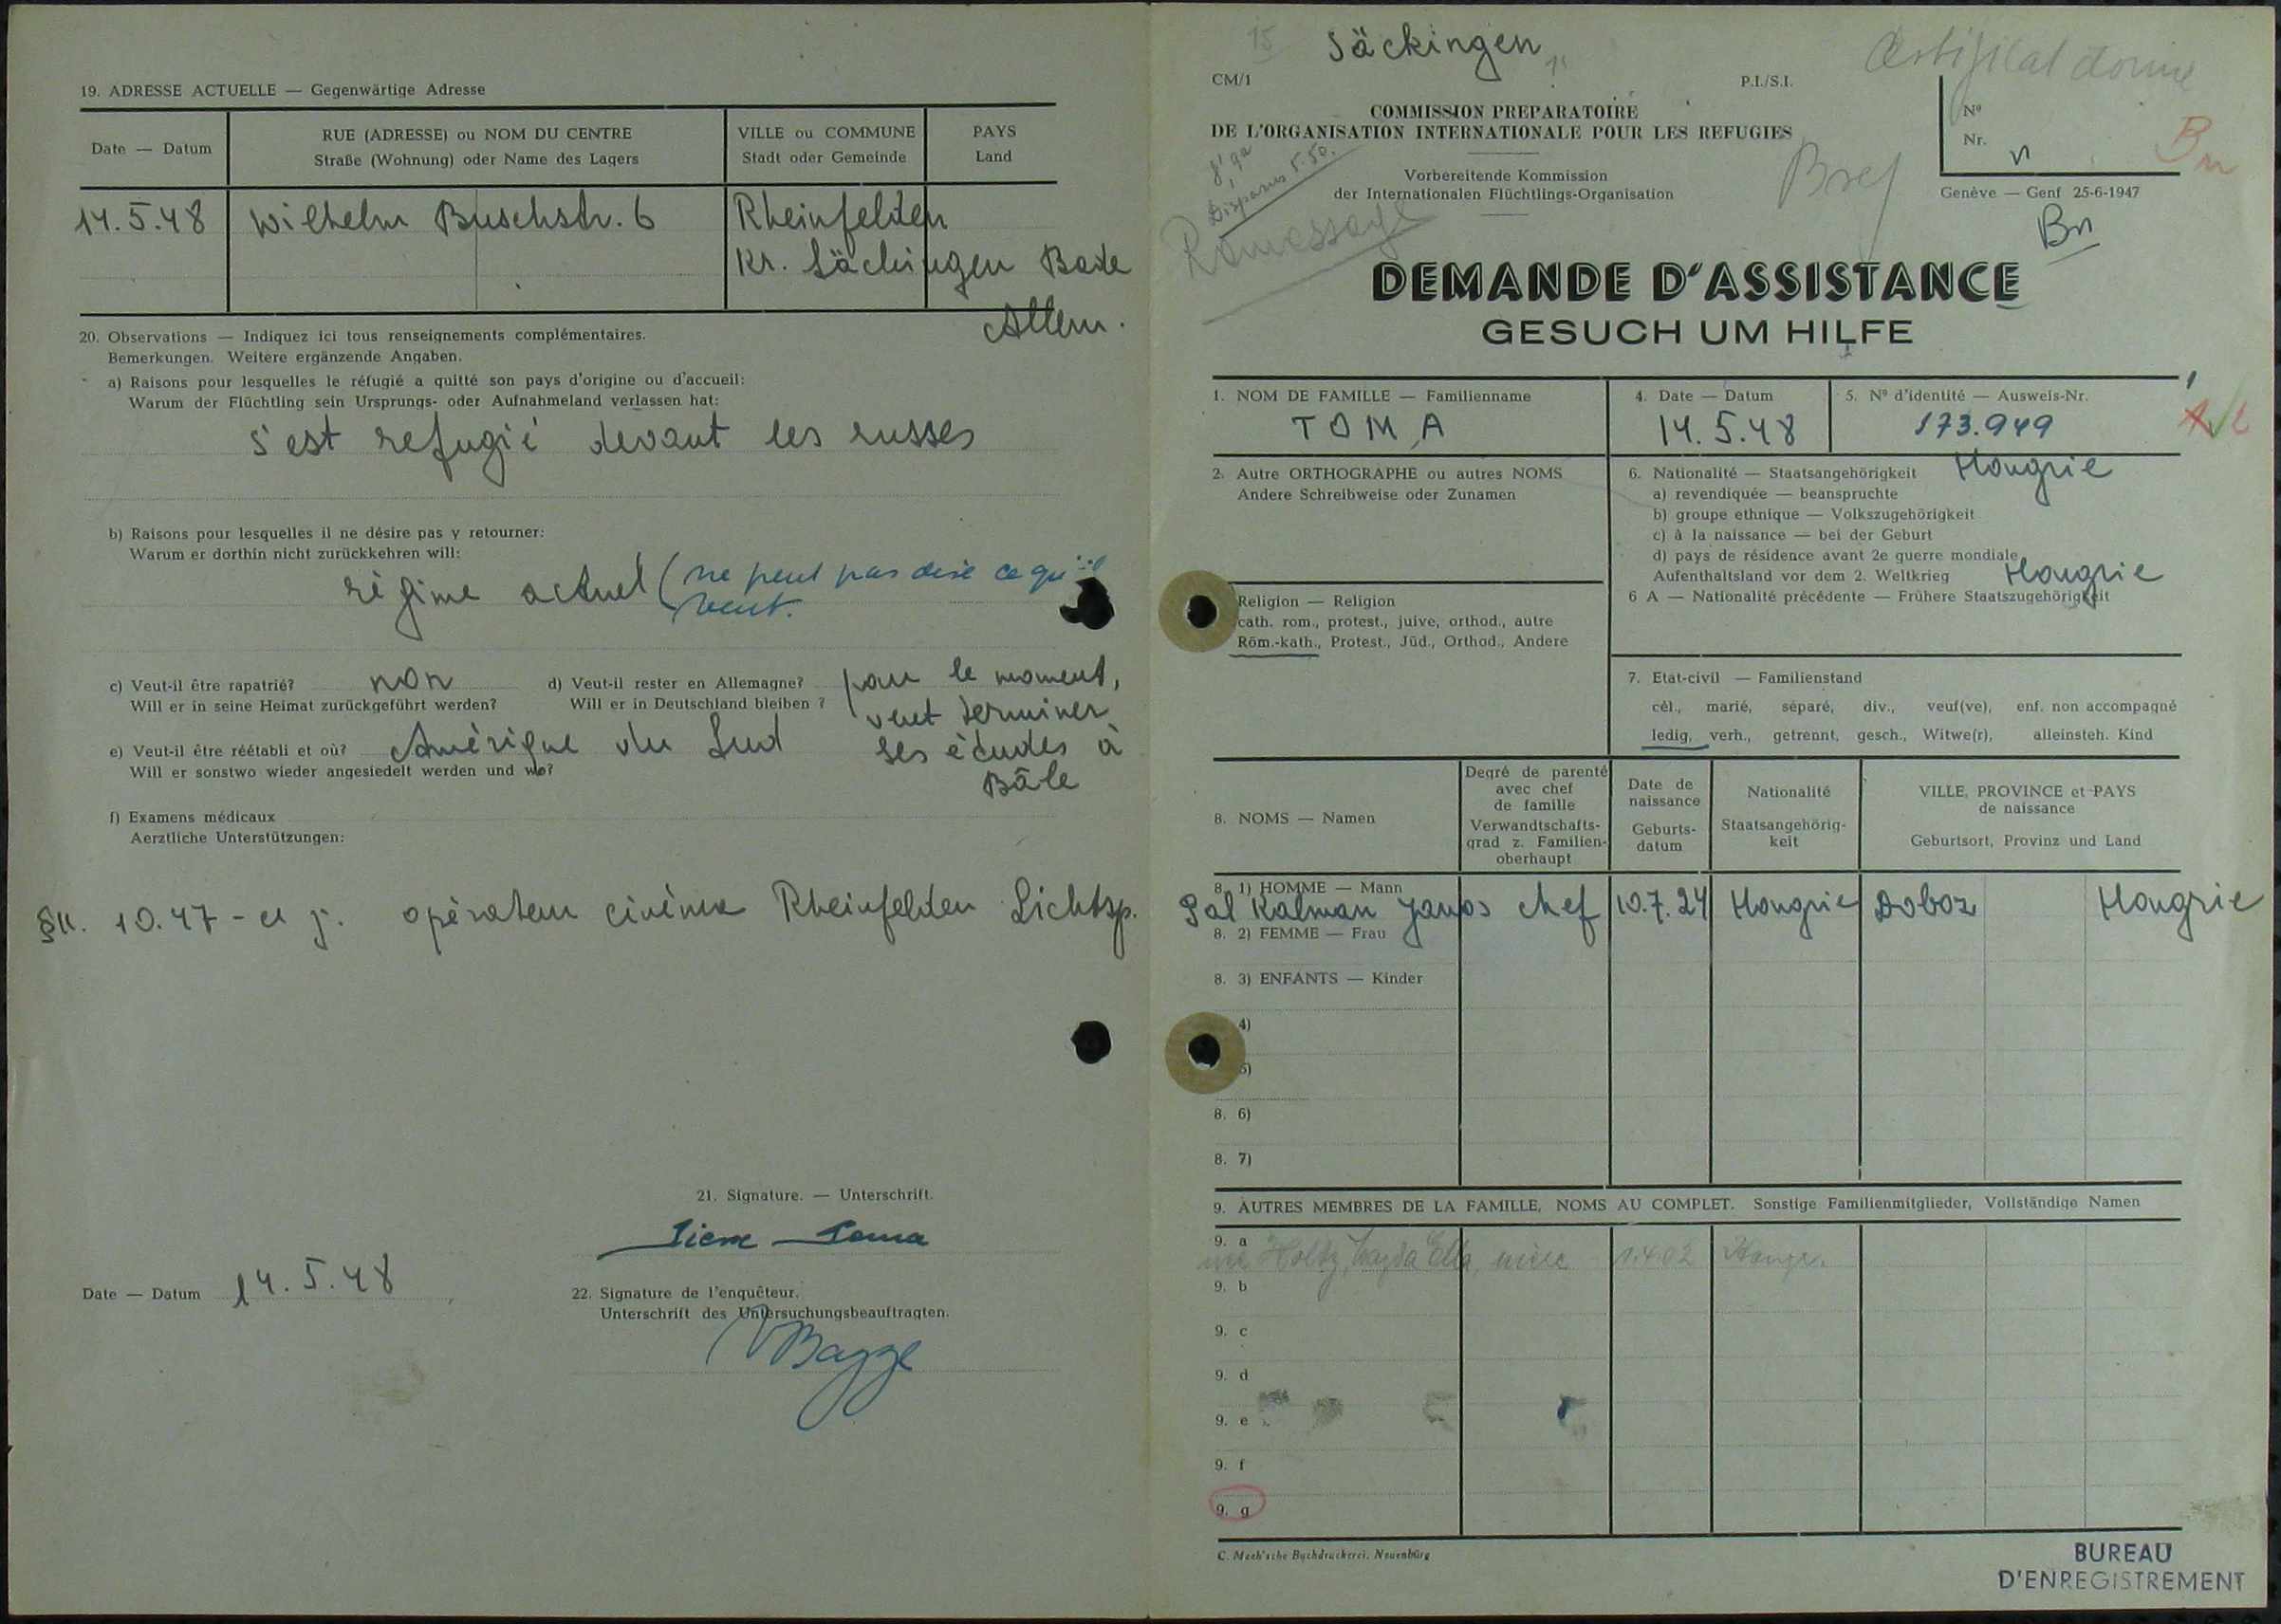 19. ADRESSE ACTUELLE — Gegenwärtige Adresse
Date — Datum
RUE (ADRESSE) ou NOM DU CENTRE
Straße (Wohnung) oder Name des Lagers
VILLE ou COMMUNE
Stadt oder Gemeinde
PAYS
Land
14.5.48
Wilhelm Buschstr. 6
Rheinfelden
Kr. Säckingen Bade
Allem.
20. Observations — Indiquez ici tous renseignements complémentaires.
Bemerkungen. Weitere ergänzende Angaben.
a) Raisons pour lesquelles le réfugié a quitté son pays d'origine ou d'accueil:
Warum der Flüchtling sein Ursprungs- oder Aufnahmeland verlassen hat:
s'est refugié devant les russes
b) Raisons pour lesquelles il ne désire pas y retourner:
Warum er dorthin nicht zurückkehren will:
régime actuel (ne peut pas dire ce qu'il
veut.
c) Veut-il être rapatrié? non
Will er in seine Heimat zurückgeführt werden?
d) Veut-il rester en Allemagne? pour le moment,
Will er in Deutschland bleiben ? veut terminer
ses études à
Bâle
e) Veut-il être réétabli et où? Amérique du Sud
Will er sonstwo wieder angesiedelt werden und wo?
f) Examens médicaux
Aerztliche Unterstützungen:
§11. 10.47 - a j. opérateur cinéma Rheinfelden Lichtsp.
21. Signature. — Unterschrift.
Toma
Date — Datum 14.5.48
22. Signature de l'enquêteur.
Unterschrift des Untersuchungsbeauftragten.
15 Säckingen
CM/1
P.I./S.I.
Certificat donné
COMMISSION PREPARATOIRE
DE L'ORGANISATION INTERNATIONALE POUR LES REFUGIES
Vorbereitende Kommission
der Internationalen Flüchtlings-Organisation
5.50.
Nº
Nr.
Bn
Genève — Genf 25-6-1947
Bn
DEMANDE D'ASSISTANCE
GESUCH UM HILFE
1. NOM DE FAMILLE — Familienname
TOMA
4. Date — Datum
14.5.48
5. Nº d'identité — Ausweis-Nr.
173.949
2. Autre ORTHOGRAPHE ou autres NOMS
Andere Schreibweise oder Zunamen
6. Nationalité — Staatsangehörigkeit Hongrie
a) revendiquée — beanspruchte
b) groupe ethnique — Volkszugehörigkeit
c) à la naissance — bei der Geburt
d) pays de résidence avant 2e guerre mondiale
Aufenthaltsland vor dem 2. Weltkrieg Hongrie
6 A — Nationalité précédente — Frühere Staatszugehörigkeit
Religion — Religion
cath. rom., protest., juive, orthod., autre
Röm.-kath., Protest., Jüd., Orthod., Andere
7. Etat-civil — Familienstand
cél., marié, séparé, div., veuf(ve), enf. non accompagné
ledig, verh., getrennt, gesch., Witwe(r), alleinsteh. Kind
8. NOMS — Namen
Degré de parenté
avec chef
de famille
Verwandtschafts-
grad z. Familien-
oberhaupt
Date de
naissance
Geburts-
datum
Nationalité
Staatsangehörig-
keit
VILLE, PROVINCE et PAYS
de naissance
Geburtsort, Provinz und Land
8. 1) HOMME — Mann
Pal Kalman Janos chef 10.7.24 Hongrie Doboz Hongrie
8. 2) FEMME — Frau
8. 3) ENFANTS — Kinder
4)
5)
8. 6)
8. 7)
9. AUTRES MEMBRES DE LA FAMILLE, NOMS AU COMPLET. Sonstige Familienmitglieder, Vollständige Namen
9. a
mère 1.4.02 Hongr.
9. b
9. c
9. d
9. e
9. f
9. g
C. Meeh'sche Buchdruckerei, Neuenbürg
BUREAU
D'ENREGISTREMENT